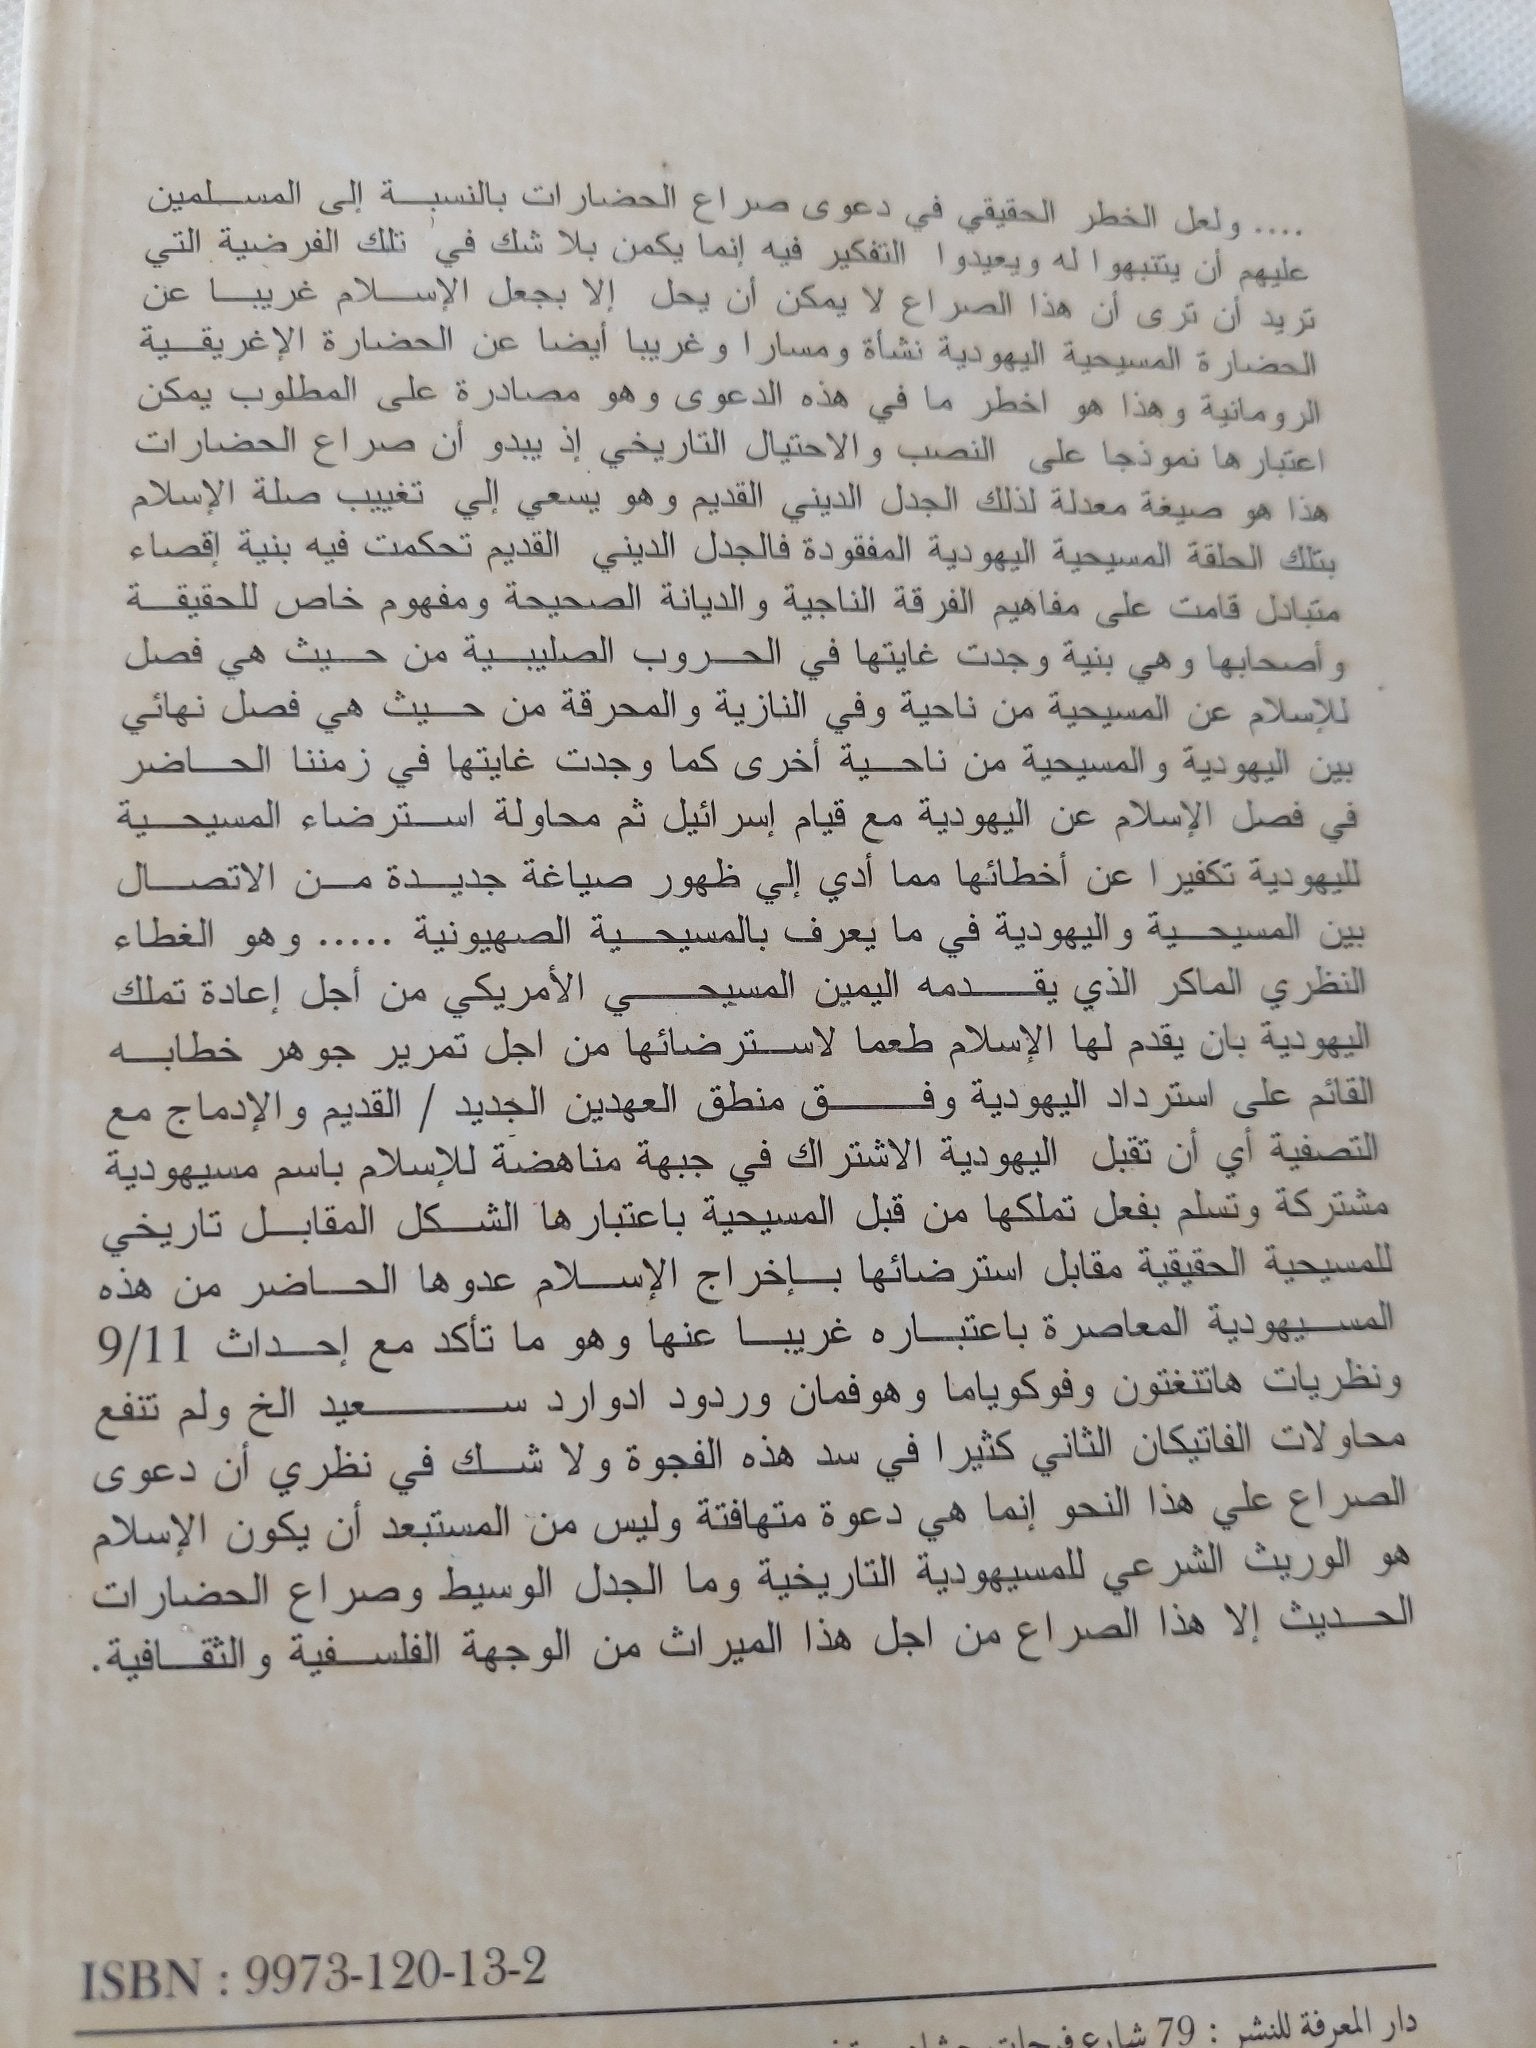 .... ولعل الخطر الحقيقي في دعوى صراع الحضارات بالنسبة إلى المسلمين
عليهم أن ينتبهوا له ويعيدوا التفكير فيه إنما يكمن بلا شك في تلك الفرضية التي
تريد أن ترى أن هذا الصراع لا يمكن أن يحل إلا بجعل الإسلام غريبا عن
الحضارة المسيحية اليهودية نشأة ومسارا وغريبا أيضا عن الحضارة الإغريقية
الرومانية وهذا هو اخطر ما في هذه الدعوى وهو مصادرة على المطلوب يمكن
اعتبارها نموذجا على النصب والاحتيال التاريخي إذ يبدو أن صراع الحضارات
هذا هو صيغة معدلة لذلك الجدل الديني القديم وهو يسعي إلي تغييب صلة الإسلام
بتلك الحلقة المسيحية اليهودية المفقودة فالجدل الديني القديم تحكمت فيه بنية إقصاء
متبادل قامت على مفاهيم الفرقة الناجية والديانة الصحيحة ومفهوم خاص للحقيقة
وأصحابها وهي بنية وجدت غايتها في الحروب الصليبية من حيث هي فصل
للإسلام عن المسيحية من ناحية وفي النازية والمحرقة من حيث هي فصل نهائي
بين اليهودية والمسيحية من ناحية أخرى كما وجدت غايتها في زمننا الحاضر
في فصل الإسلام عن اليهودية مع قيام إسرائيل ثم محاولة استرضاء المسيحية
لليهودية تكفيرا عن أخطائها مما أدي إلي ظهور صياغة جديدة من الاتصال
بين المسيحية واليهودية في ما يعرف بالمسيحية الصهيونية ..... وهو الغطاء
النظري الماكر الذي يقدمه اليمين المسيحي الأمريكي من أجل إعادة تملك
اليهودية بان يقدم لها الإسلام طعما لاسترضائها من اجل تمرير جوهر خطابه
القائم على استرداد اليهودية وفق منطق العهدين الجديد / القديم والإدماج مع
التصفية أي أن تقبل اليهودية الاشتراك في جبهة مناهضة للإسلام باسم مسيهودية
مشتركة وتسلم بفعل تملكها من قبل المسيحية باعتبارها الشكل المقابل تاريخي
للمسيحية الحقيقية مقابل استرضائها بإخراج الإسلام عدوها الحاضر من هذه
المسيهودية المعاصرة باعتباره غريبا عنها وهو ما تأكد مع إحداث 9/11
ونظريات هانتنغتون وفوكوياما وهوفمان وردود ادوارد سعيد الخ ولم تنفع
محاولات الفاتيكان الثاني كثيرا في سد هذه الفجوة ولا شك في نظري أن دعوى
الصراع علي هذا النحو إنما هي دعوة متهافتة وليس من المستبعد أن يكون الإسلام
هو الوريث الشرعي للمسيهودية التاريخية وما الجدل الوسيط وصراع الحضارات
الحديث إلا هذا الصراع من اجل هذا الميراث من الوجهة الفلسفية والثقافية.
ISBN : 9973-120-13-2
دار المعرفة للنشر : 79 شارع فرحات